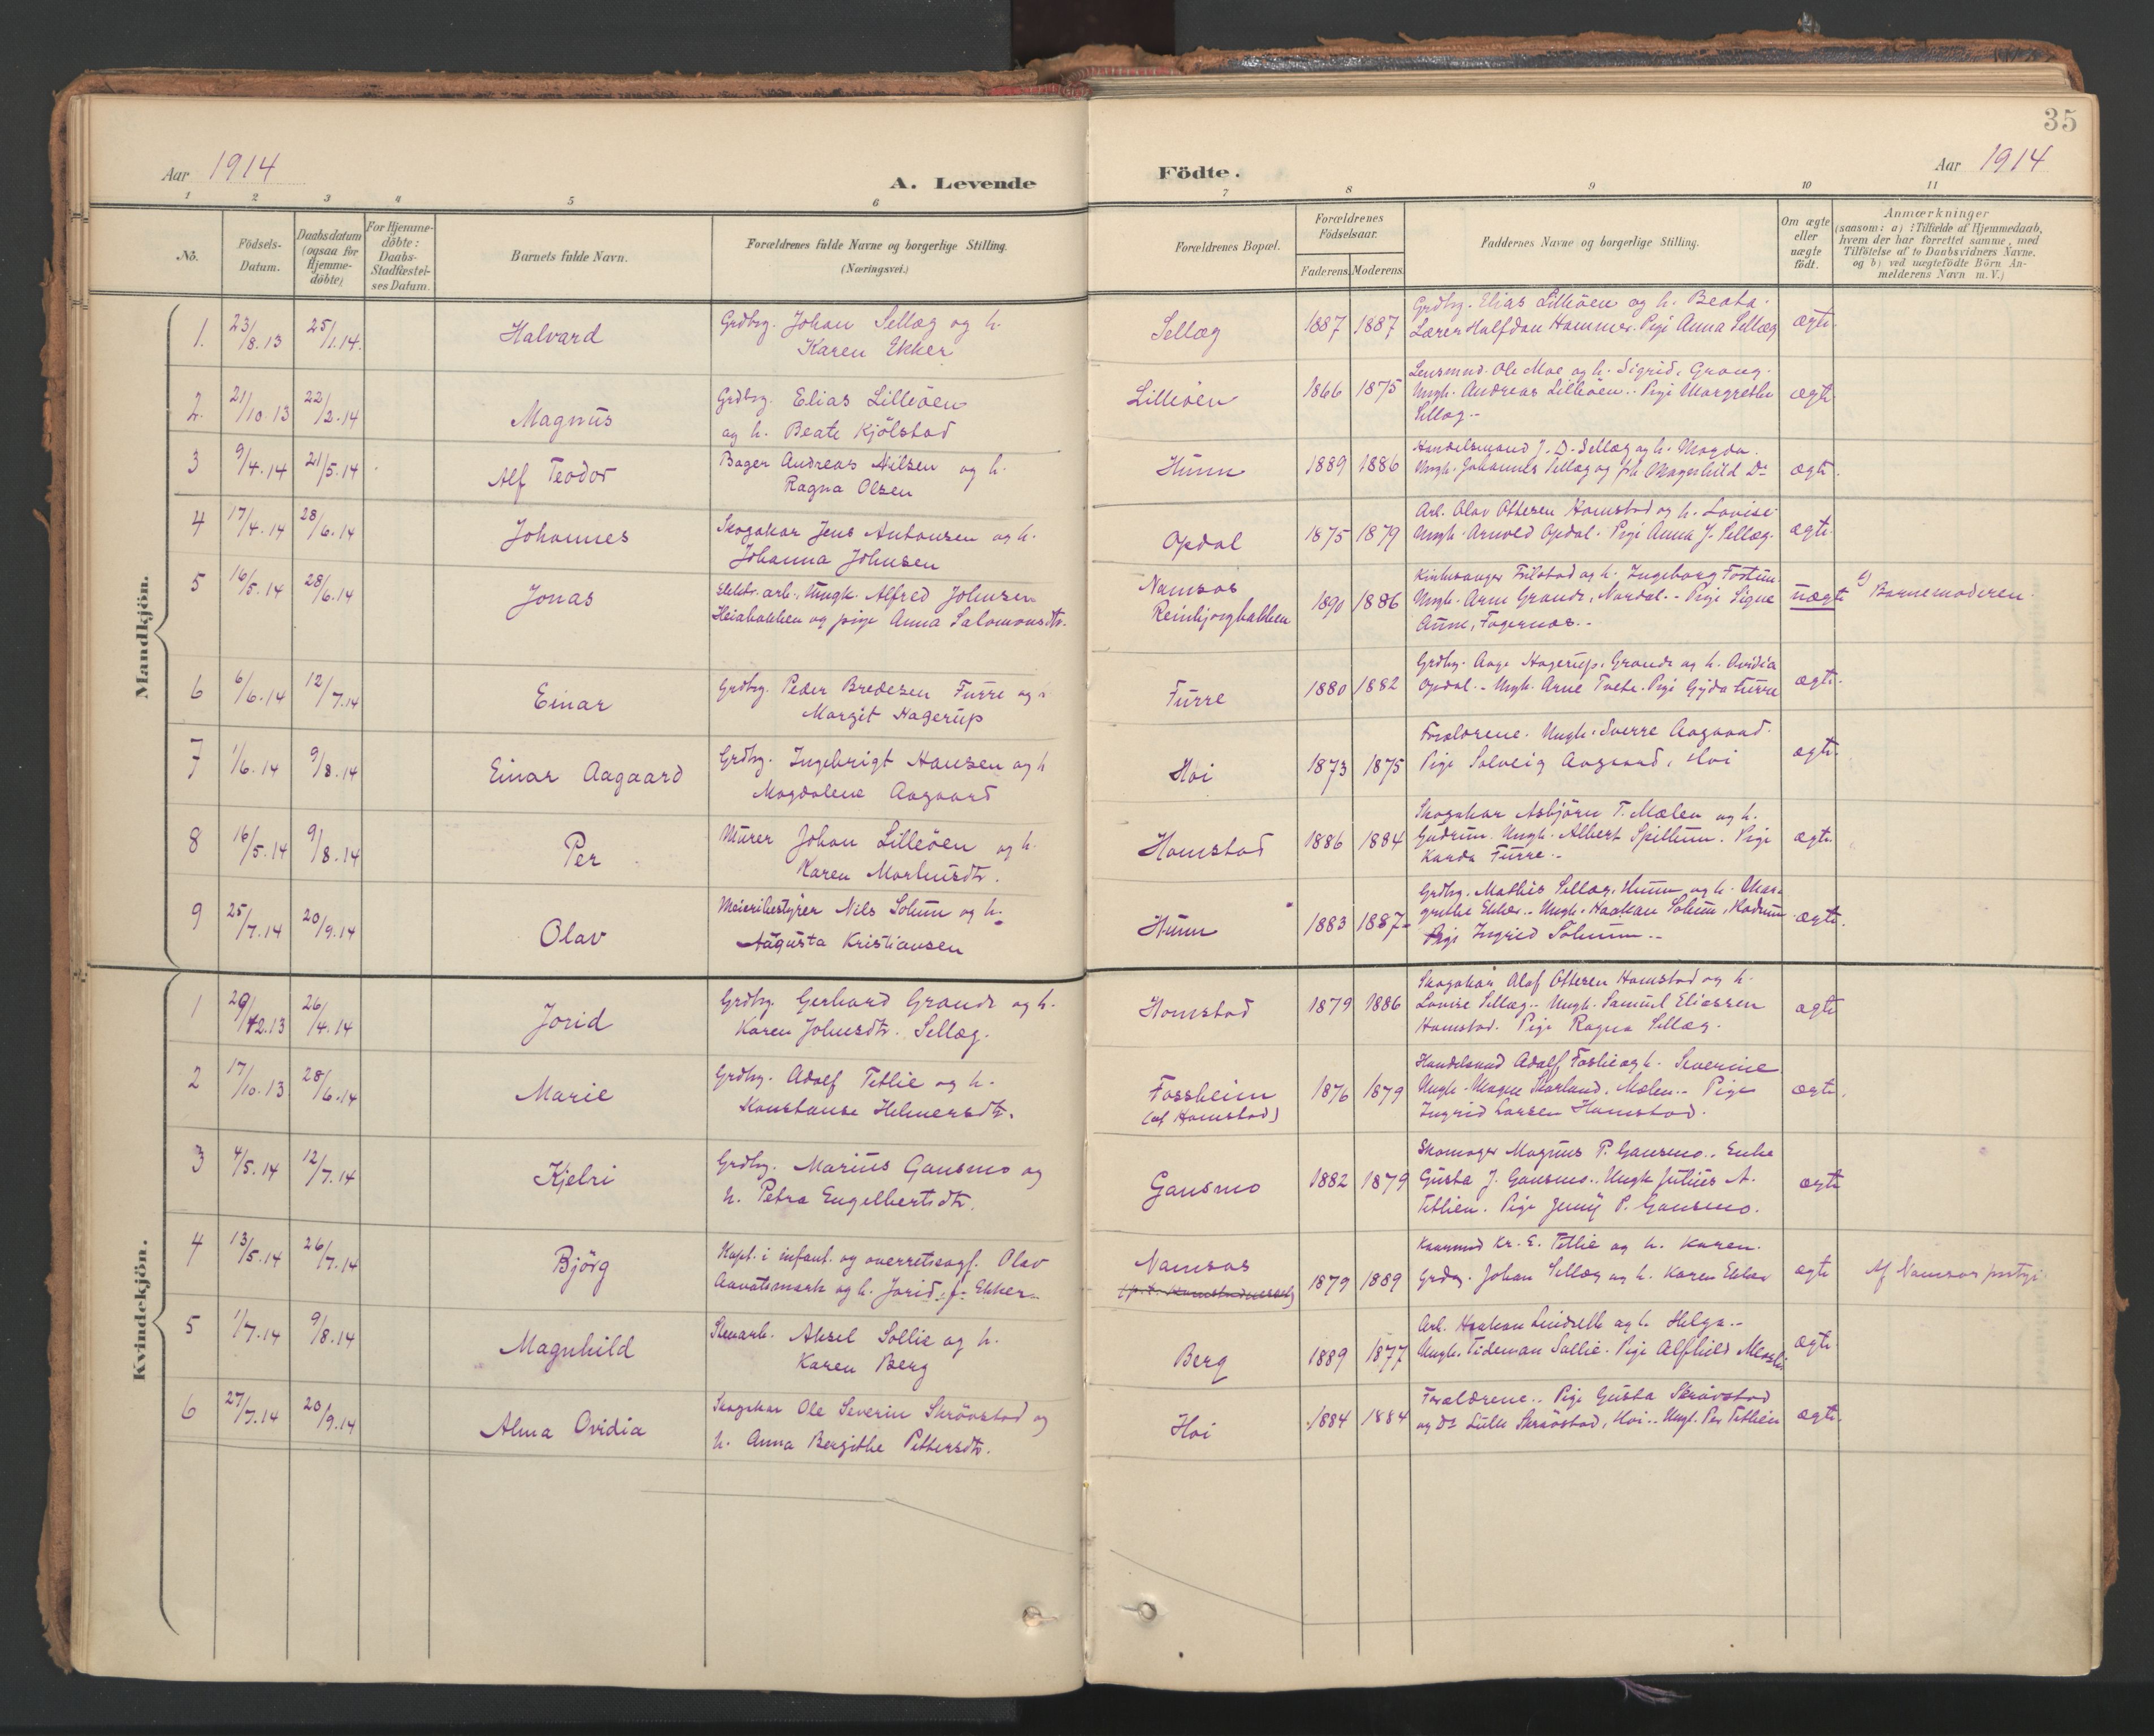 35
Aar 1914
A. Levende
Födte.
Aar 1914
1 2 3 4 5 6 7 8 9 10 11
No.
Födsels-Datum.
Daabsdatum (ogsaa for Hjemme-döbte)
For Hjemme-döbte: Daabs-Stadfæstel-ses Datum.
Barnets fulde Navn.
Forældrenes fulde Navne og borgerlige Stilling.
(Næringsvei.)
Forældrenes Bopæl.
Forældrenes Födselsaar.
Faderens. Moderens.
Faddernes Navne og borgerlige Stilling.
Om ægte eller uægte födt.
Anmærkninger
(saasom: a) i Tilfælde af Hjemmedaab, hvem der har forrettet samme, med Tilföielse af to Daabsvidners Navne. og b) ved uægtefödte Börn An-melderens Navn m. V.)
Mandkjön.
1. 23/8.13 25/1.14. Halvard
Grdbg. Johan Sellæg og h.
Karen Ekker
Sellæg 1887 1887
Grdbg. Elias Lilleöen og h. Beata.
Lærer Halfdan Hammer. Pige Anna Sellæg
ægte.
2. 21/10.13 22/2.14 Magnus
Grdbg. Elias Lilleöen
og h. Beate Kjölstad
Lilleöen 1866 1875
Lensmnd. Ole Moe og h. Sigrid, Grong.
Ungk. Andreas Lilleöen.. Pige Margrethe
Sellæg..
ægte
3 9/4.14 21/5.14 Alf Teodor
Bager Andreas Nilsen og h.
Ragna Olsen
Hunn 1889 1886
Handelsmand J. D. Sellæg og h. Magda.
Ungk. Johannes Sellæg og frk Magnhild Do
ægte.
4 17/4.14 28/6.14 Johannes
Skogakar Jens Antonsen og h.
Johanna Johnsen
Opdal 1875 1879
Arb. Olav Ottesen Homstad og h. Lovise.
Ungk. Arnold Opdal. Pige Anna J. Sellæg.
ægte.
5 16/5.14 28/6.14 Jonas
Elektr. arb., Ungk. Alfred Johnsen
Heiabakken og pige Anna Salomonsdtr.
Namsos
Reinbjørgbakken 1890 1886
Kirkesanger Filstad og h. Ingeborg
Ungk. Arne Grande, Nordal.. Pige Signe
Aune, Fagernes..
uægte
Barnemoderen.
6 6/6.14 12/7.14 Einar
Grdbg. Peder Bredesen Furre og h
Margit Hagerup
Furre 1880 1882
Grdbg. Aage Hagerup, Grande og h. Ovidia
Opdal.. Ungk. Arne Tvete. Pige Gyda Furre
ægte.
7 1/6.14 9/8.14 Einar Aagaard
Grdbg. Ingebrigt Hansen og h
Magdalene Aagaard
Høi 1873 1875
Forældrene. Ungk. Sverre Aagaard.
Pige Solveig Aagaard, Høi
ægte.
8 16/5.14 9/8.14 Per
Murer Johan Lilleöen og h.
Karen Markusdtr.
Homstad 1886 1884
Skogakar Asbjörn T. Mælen og h.
Gudrun. Ungk. Albert Spillum. Pige
Karda Furre..
ægte.
9 25/7.14 20/9.14 Olav
Meieribestyrer Nils Solum og h.
Augusta Kristiansen
Hunn 1883 1887
Grdbg. Mathis Sellæg, Hunn og h. Mar-
grethe Ekker.. Ungk. Haakan Solum,
Pige Ingrid Solum..
ægte.
Kvindekjön.
1 29/12.13 26/4.14 Jorid
Grdbg. Gerhard Grande og h.
Karen Johnsdtr. Sellæg.
Homstad 1879 1886
Skogakar Olaf Ottesen Homstad og h.
Lovise Sellæg.. Ungk. Samuel Eliassen
Homstad. Pige Ragna Sellæg.
ægte
2 17/10.13 28/6.14 Marie
Grdbg. Adolf Tetlie og h.
Konstanse Helmersdtr.
Fossheim
(af Homstad) 1876 1879
Handelsmd Adolf Foslie og h. Severine
Ungk. Magne Skarland, Mælen.. Pige
Ingrid Larsen Homstad.
ægte.
3 4/5.14 12/7.14 Kjelri
Grdbg. Marius Gansmo og
h. Petra Engelbertsdtr.
Gansmo 1882 1879
Skomager Magnus P. Gansmo.. Enke
Gusta J. Gansmo.. Ungk Julius A.
Tetlien. Pige Jenny P. Gansmo.
ægte
4 13/5.14 26/7.14 Björg
Kapt. i infant. og overretssagf. Olav
Aavatsmark og h. Jorid f. Ekker..
Namsos 1879 1889
Kaarmnd Kr. E. Tetlie og h. Karen.
Grdbg. Johan Sellæg og h. Karen Ekker
ægte
Af Namsos prstgj.
5 1/7.14 9/8.14 Magnhild
Stenarb. Aksel Sollie og h.
Karen Berg
Berg 1889 1877
Arb. Haakon Lindseth og h. Helga..
Ungk. Tideman Sollie. Pige Alfhild
ægte.
6 27/7.14 20/9.14 Alma Ovidia
Skogakar Ole Severin Skrövstad og
h. Anna Bergithe Pettersdtr.
Høi 1884 1884
Forældrene.. Pige Gusta Skrövstad
og Do Lulle Skrövstad, Høi.. Ungk. Per Tetlien
ægte.